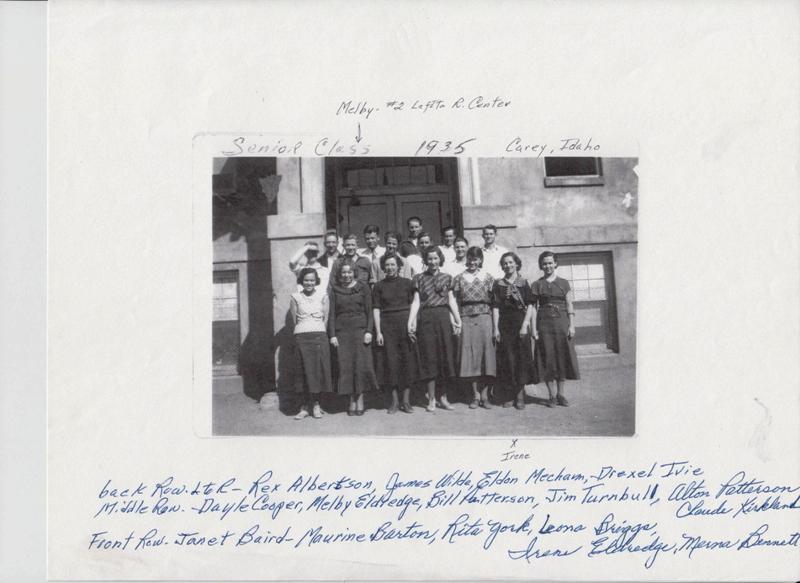 Melby - #2 Left to R. Center
Senior Class 1935 Carey, Idaho
x
Irene
back Row. L to R - Rex Albertson, James Wilde, Eldon Mecham, - Drexel Ivie
Middle Row. - Dayle Cooper, Melby Eldredge, Bill Patterson, Jim Turnbull, Alton Patterson
Claude Kirkland
Front Row - Janet Baird - Maurine Barton, Rita York, Leona Briggs,
Irene Eldredge, Merna Bennett